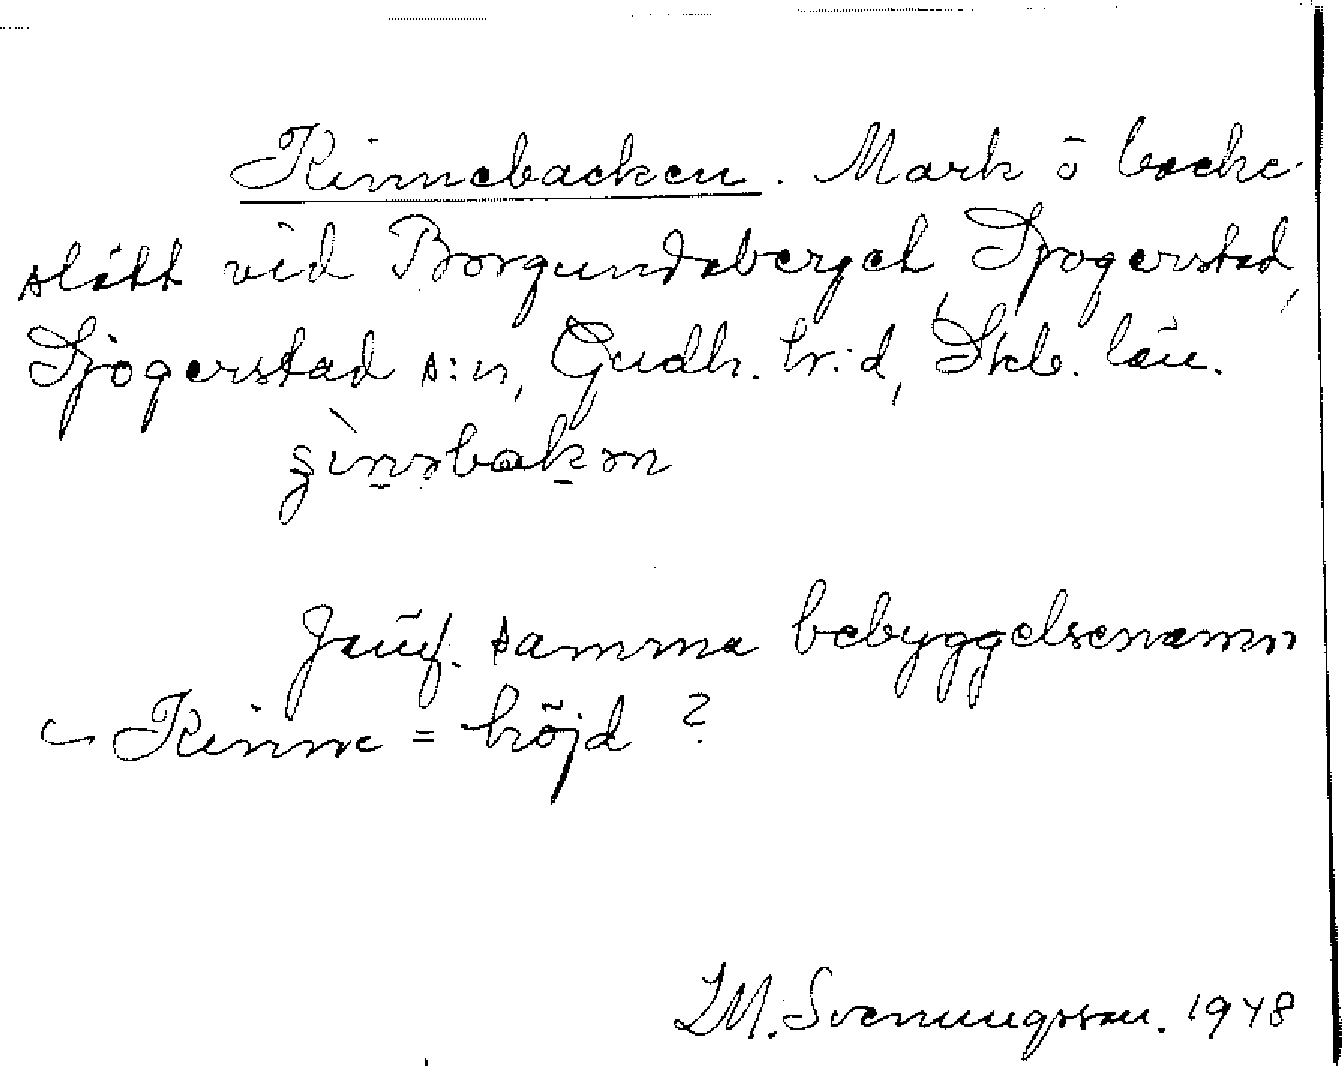 Kinnebacken. Mark o backe
slätt vid Borgundabergel Sjogerstad,
Sjögerstad s:n, Gudh. hr:d, Skb. län.
Jämf. samma bebyggelsenamn
Kinne = höjd ?
LM. Svenungsson. 1948